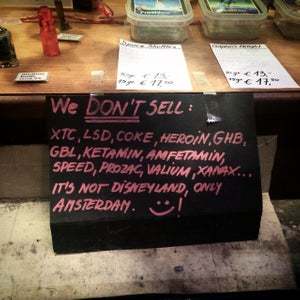 We DON'T SELL:
XTC, LSD, COKE, HEROIN, GHB,
GBL, KETAMIN, AMFETAMIN,
SPEED, PROZAC, VALIUM, XANAX...
IT'S NOT DISNEYLAND, ONLY
AMSTERDAM. !